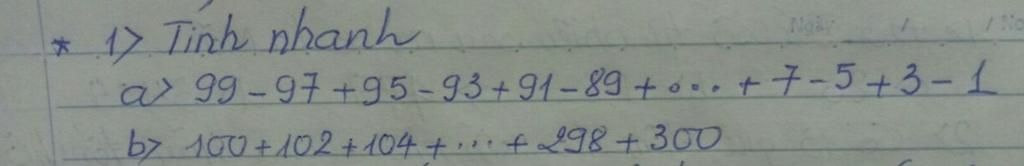 Ngày / / No
* 1> Tính nhanh
a> 99 - 97 + 95 - 93 + 91 - 89 + ... + 7 - 5 + 3 - 1
b> 100 + 102 + 104 + ... + 298 + 300